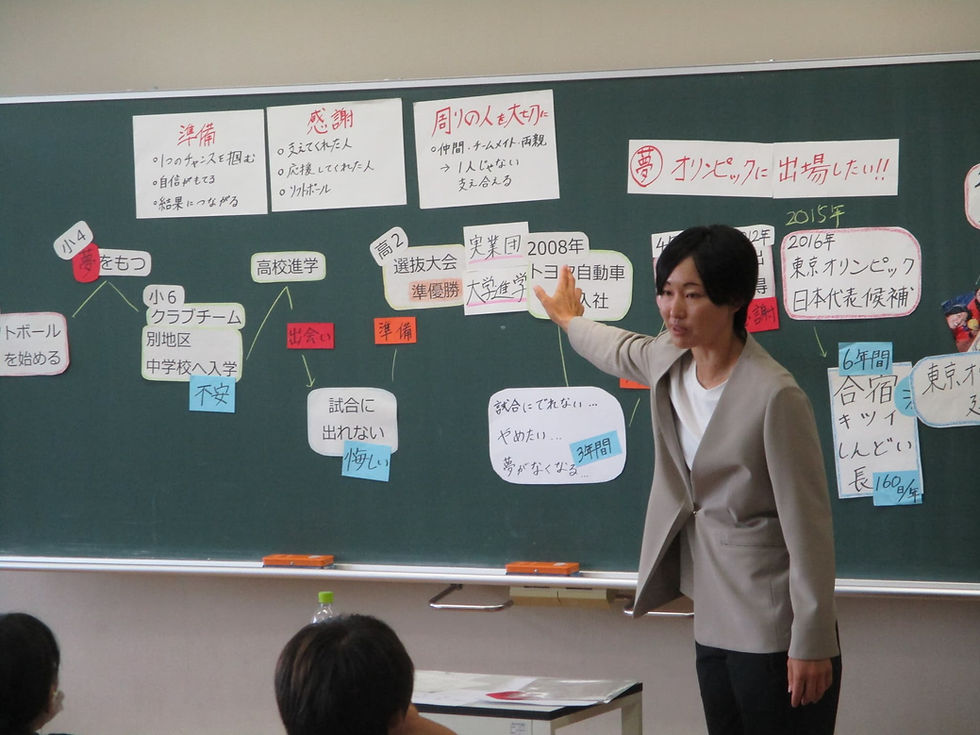 準備
○1つのチャンスを掴む
○自信がもてる
○結果につながる
感謝
○支えてくれた人
○応援してくれた人
○ソフトボール
周りの人を大切に
○仲間・チームメイト・両親
→1人じゃない
支え合える
夢 オリンピックに出場したい!!
トボール
を始める
小4
夢をもつ
小6
クラブチーム
別地区
中学校へ入学
不安
高校進学
出会い
試合に
出れない
悔しい
準備
高2
選抜大会
準優勝
実業団
大学進学
2008年
トヨタ自動車
入社
試合にでれない…
やめたい…
夢がなくなる…
3年間
2015年
2016年
東京オリンピック
日本代表候補
6年間
合宿
キツイ
しんどい
長
160日/年
東京オ